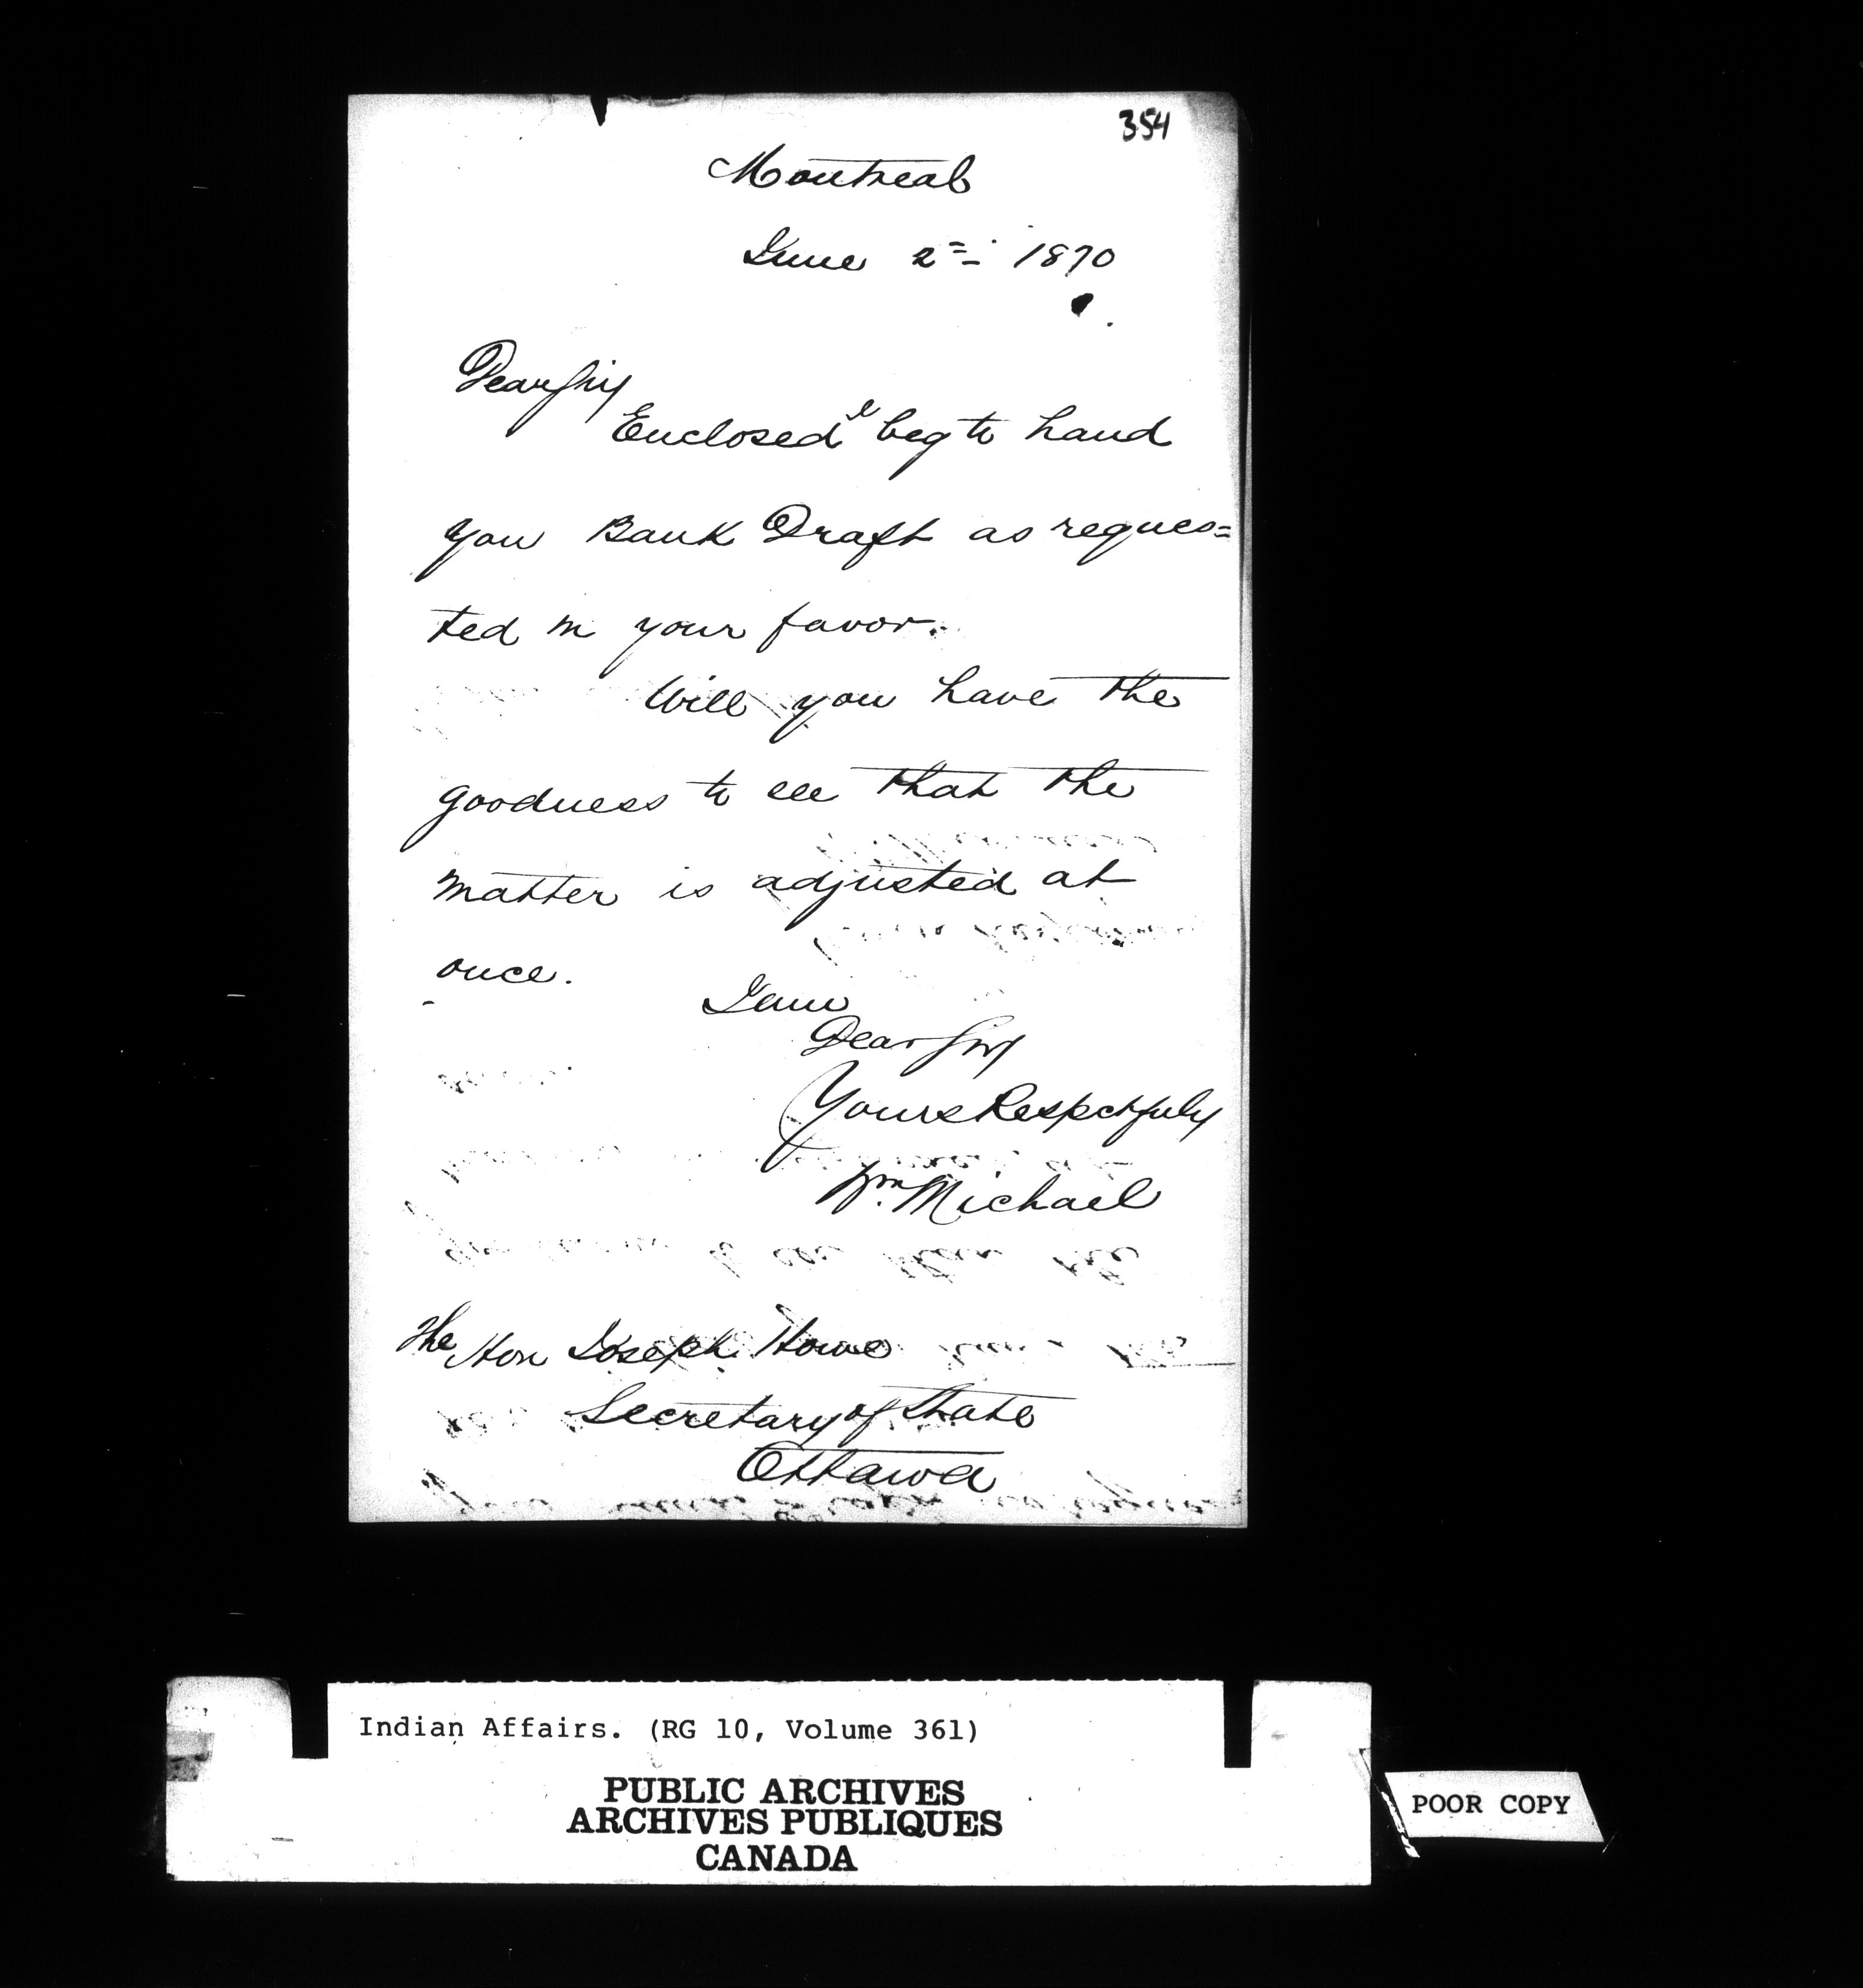 354
Montreal
June 2nd 1870
Dear Sir
Enclosed I beg to hand
you Bank Draft as reques=
ted in your favor.
Will you have the
goodness to see that the
matter is adjusted at
once.
I am
Dear Sir
Yours Respectfuly
Wm. Michael
The Hon Joseph Howe
Secretary of State
Ottawa
Indian Affairs. (RG 10, Volume 361)
PUBLIC ARCHIVES
ARCHIVES PUBLIQUES
CANADA
POOR COPY